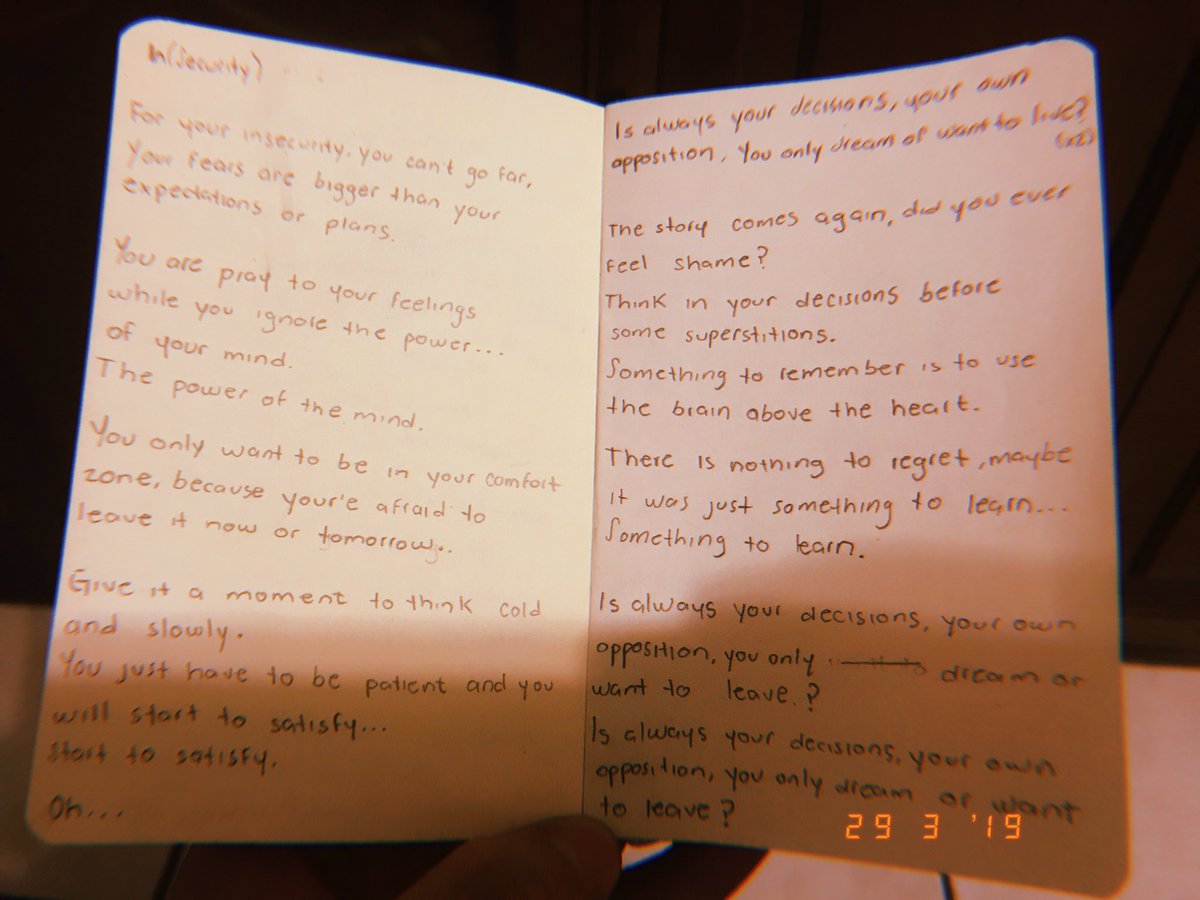 In(Security)
For your insecurity. you can't go far,
Your fears are bigger than your
expectations or plans.
You are pray to your feelings
while you ignore the power...
of your mind.
The power of the mind.
You only want to be in your comfort
zone, because your'e afraid to
leave it now or tomorrow...
Give it a moment to think cold
and slowly.
You just have to be patient and you
will start to satisfy...
Start to satisfy.
Oh...
Is always your decisions, your own
opposition, You only dream of want to live?
(x2)
The story comes again, did you ever
Feel shame?
Think in your decisions before
some superstitions.
Something to remember is to use
the brain above the heart.
There is nothing to regret, maybe
it was just something to learn...
Something to learn.
Is always your decisions, your own
opposition, you only dream or
want to leave.?
Is always your decisions, your own
opposition, you only dream or want
to leave?
29 3 '19